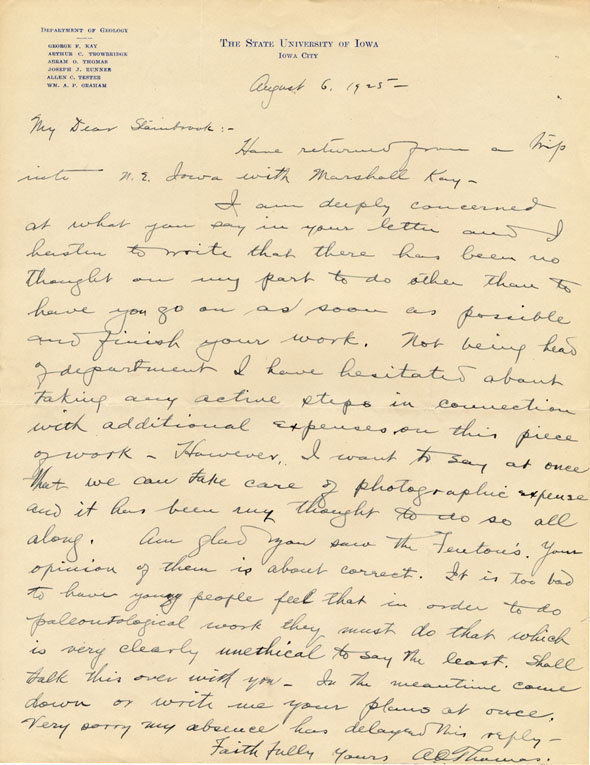 DEPARTMENT OF GEOLOGY
GEORGE F. KAY
ARTHUR C. TROWBRIDGE
ABRAM O. THOMAS
JOSEPH J. RUNNER
ALLEN C. TESTER
WM. A. P. GRAHAM
THE STATE UNIVERSITY OF IOWA
IOWA CITY
August 6, 1925 –
My Dear Stainbrook:-
Have returned from a trip
into N.E. Iowa with Marshall Kay –
I am deeply concerned
at what you say in your letter and I
hasten to write that there has been no
thought on my part to do other than to
have you go on as soon as possible
and finish your work. Not being head
of department I have hesitated about
taking any active steps in connection
with additional expenses on this piece
of work – However, I want to say at once
that we can take care of photographic expense
and it has been my thought to do so all
along. Am glad you saw the Fenton's. Your
opinion of them is about correct. It is too bad
to have young people feel that in order to do
paleontological work they must do that which
is very clearly unethical to say the least. Shall
talk this over with you – In the meantime come
down or write me your plans at once.
Very sorry my absence has delayed this reply –
Faithfully Yours AO Thomas.